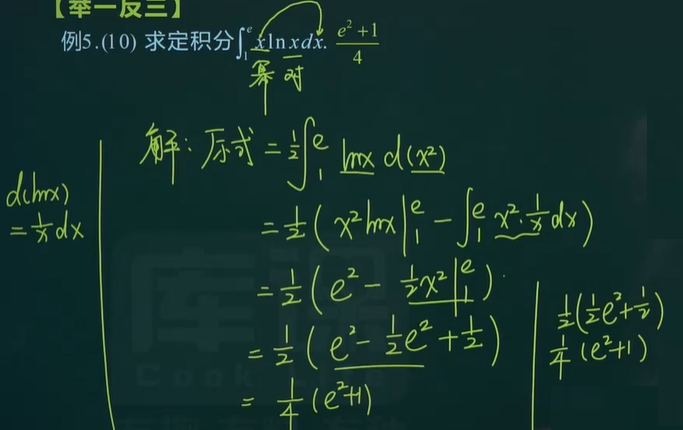 【举一反三】
例5.(10) 求定积分∫₁ᵉ x ln x dx. (e²+1)/4
幂 对
解: 原式 = 1/2 ∫₁ᵉ lnx d(x²)
d(lnx)
= 1/x dx
= 1/2 ( x² lnx |₁ᵉ − ∫₁ᵉ x²·1/x dx )
= 1/2 ( e² − 1/2 x² |₁ᵉ )
= 1/2 ( e² − 1/2 e² + 1/2 )
= 1/4 (e²+1)
1/2 ( 1/2 e² + 1/2 )
1/4 (e²+1)
库课